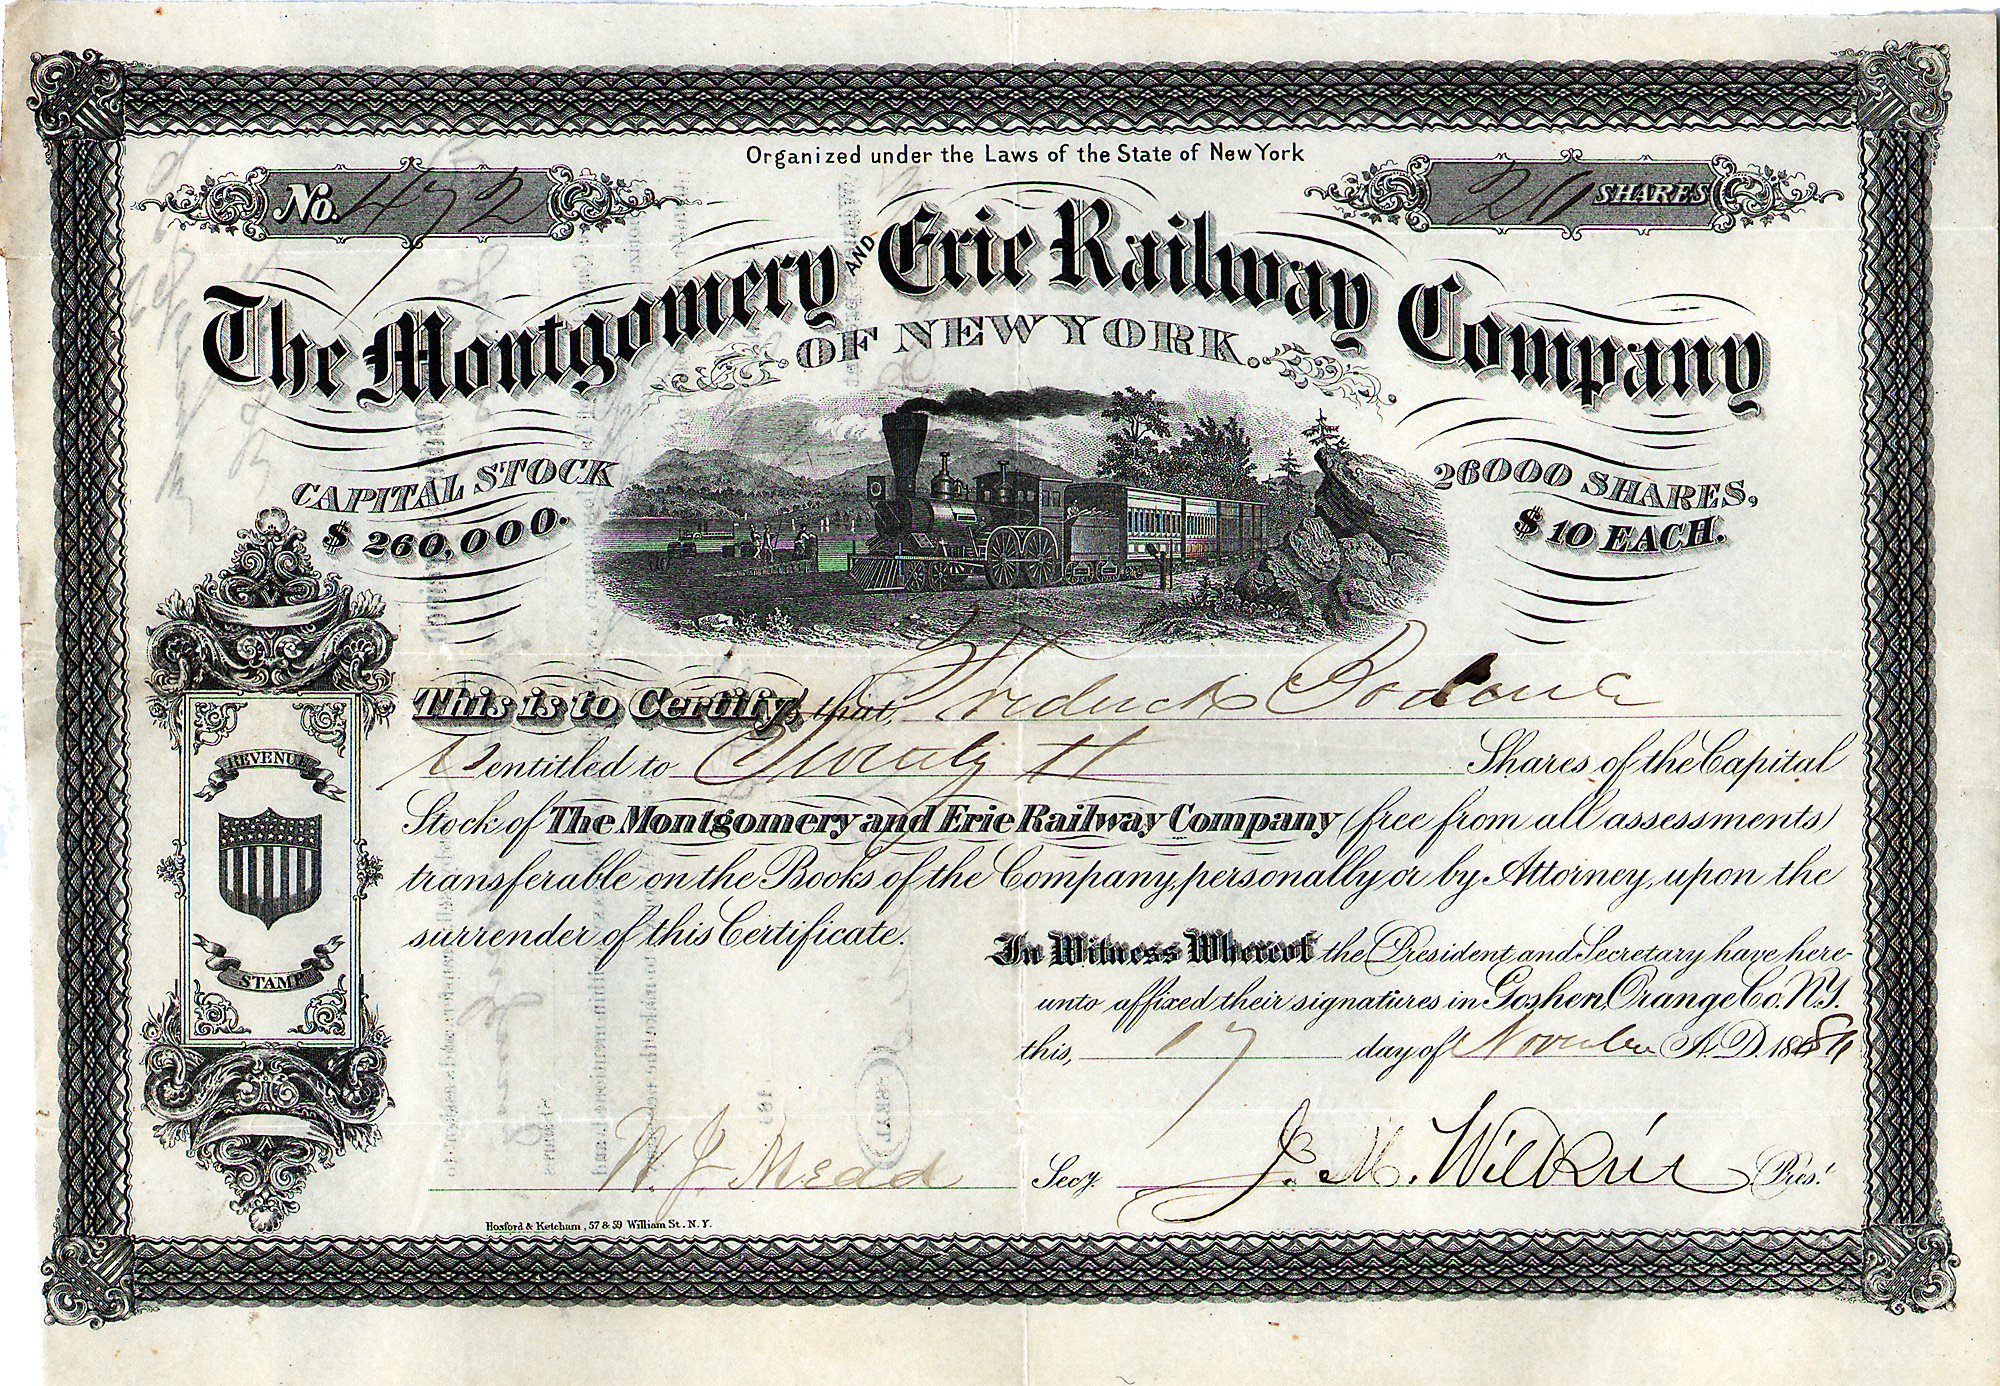 Organized under the Laws of the State of New York
No. 472
SHARES
The Montgomery AND Erie Railway Company
OF NEW YORK.
CAPITAL STOCK
$ 260,000.
26000 SHARES,
$ 10 EACH.
This is to Certify, that,
is entitled to Twenty Shares of the Capital
Stock of The Montgomery and Erie Railway Company (free from all assessments)
transferable on the Books of the Company, personally or by Attorney, upon the
surrender of this Certificate.
REVENUE
STAMP
In Witness Whereof the President and Secretary have here-
unto affixed their signatures in Goshen, Orange Co. N.Y.
this, 17 day of November A.D. 18
W. J. Mead Secy. J. M. Wilkin Pres't
Hosford & Ketcham, 57 & 59 William St. N.Y.